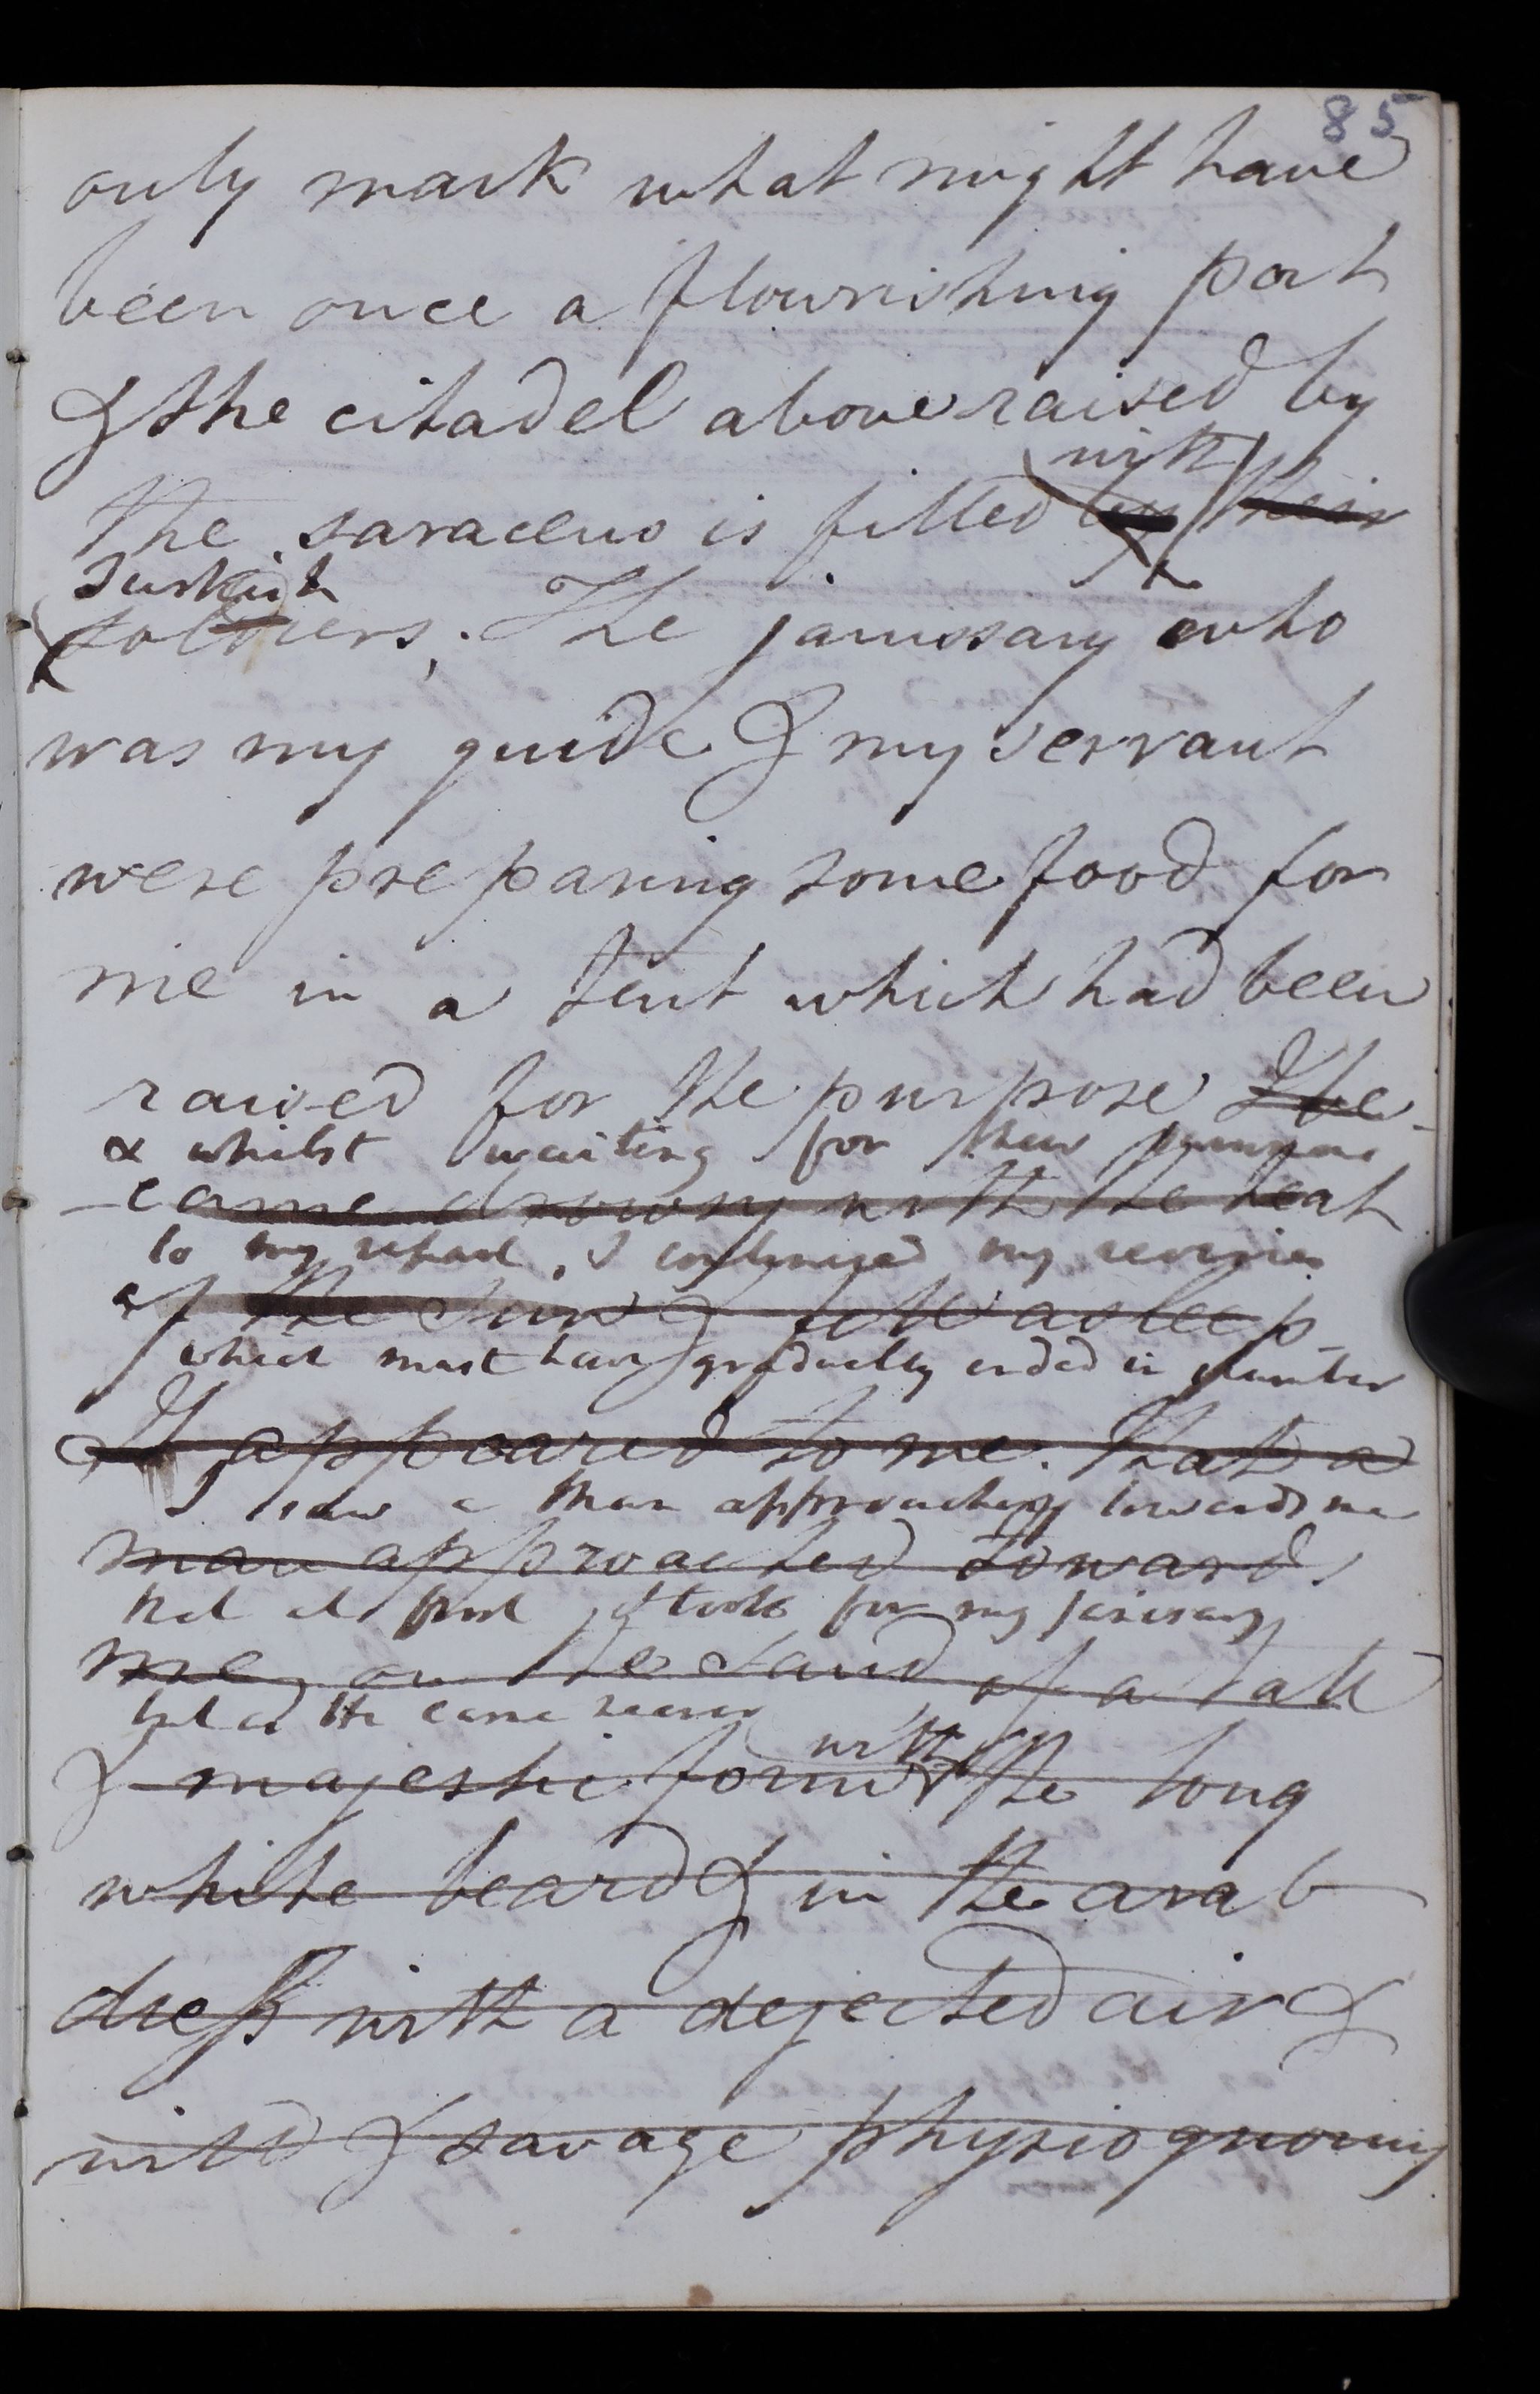 85
only mark what might have
been once a flourishing port
& the citadel above raised by
with
the saracens is filled by their
Turkish
soldiers. The janissary who
was my guide & my servant
were preparing some food for
me in a tent which had been
raised for the purpose I be-
& whilst waiting for their
-came drowsy with the heat
to my repast, I continued my reveries
of the sun & fell asleep
which must have gradually ended in slumber
It appeared to me that a
I saw a man approaching towards me
man approached towards
that at first I took for my janissary
me on the sand of a tall
but as He came nearer
with
& majestic form the long
white beard & in the arab
dress with a dejected air &
wild & savage physiognomy